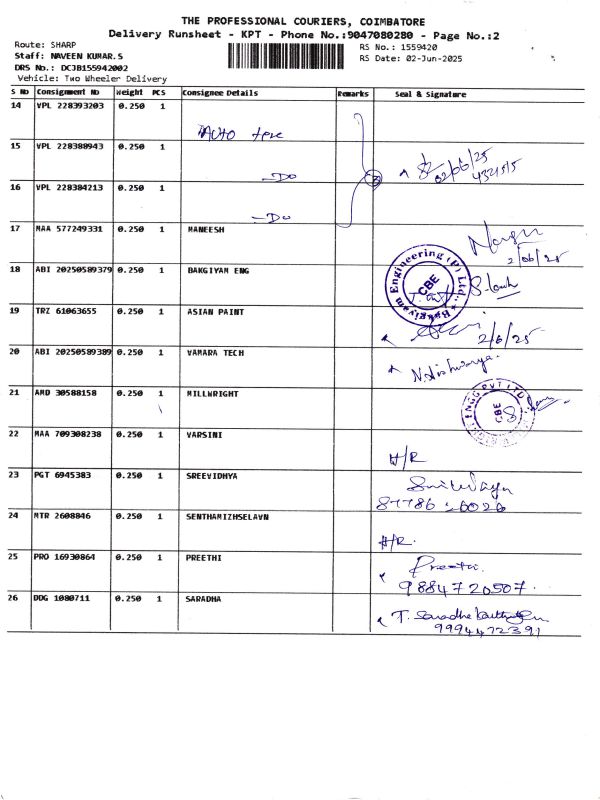 THE PROFESSIONAL COURIERS, COIMBATORE
Delivery Runsheet - KPT - Phone No.:9047080280 - Page No.:2
Route: SHARP
RS No.: 1559420
Staff: NAVEEN KUMAR.S
RS Date: 02-Jun-2025
DRS No.: DC3B155942002
Vehicle: Two Wheeler Delivery
S No Consignment No Weight PCS Consignee Details Remarks Seal & Signature
14 VPL 228393203 0.250 1
15 VPL 228388943 0.250 1 -Do 02/06/25
16 VPL 228384213 0.250 1 -Do
17 MAA 577249331 0.250 1 MANEESH 2/06/25
18 ABI 20250589379 0.250 1 BAKGIYAM ENG
Bakgiyam Engineering (P) Ltd., CBE
19 TRZ 61063655 0.250 1 ASIAN PAINT 2/6/25
20 ABI 20250589389 0.250 1 VAMARA TECH N.Aishwarya.
21 AMD 30588158 0.250 1 MILLWRIGHT
ENGG PVT LTD CBE
22 MAA 709308238 0.250 1 VARSINI H/R
23 PGT 6945383 0.250 1 SREEVIDHYA
24 MTR 2608846 0.250 1 SENTHAMIZHSELAVN H/R.
25 PRO 16930864 0.250 1 PREETHI Preethi.
9884720507.
26 DDG 1080711 0.250 1 SARADHA T. Saradha
9994472391